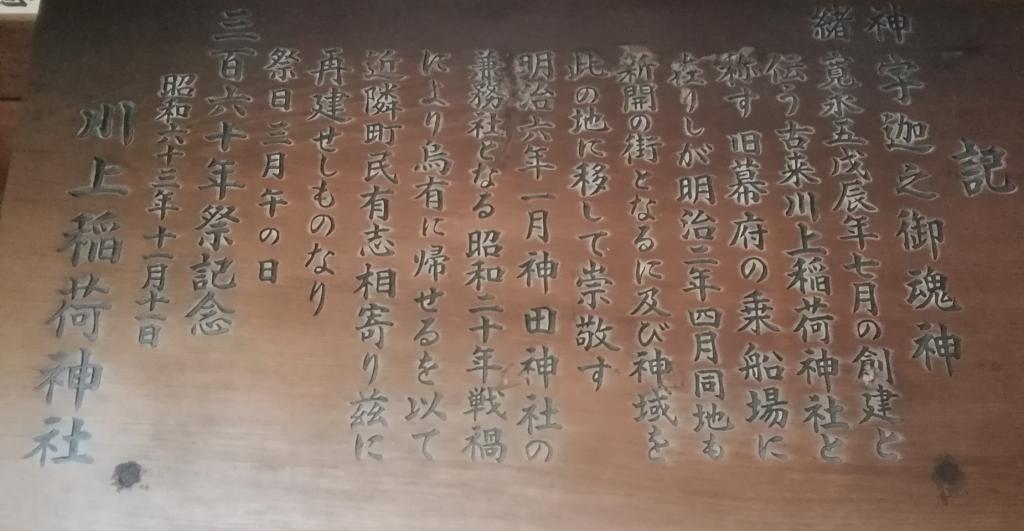 記
神 字迦之御魂神
緒 寛永五戊辰年七月の創建と
伝う古来川上稲荷神社と
称す旧幕府の乗船場に
在りしが明治二年四月同地も
新開の街となるに及び神域を
此の地に移して崇敬す
明治六年一月神田神社の
兼務社となる昭和二十年戦禍
により烏有に帰せるを以て
近隣町民有志相寄り茲に
再建せしものなり
祭日三月午の日
三百六十年祭記念
昭和六十三年十一月十一日
川上稲荷神社